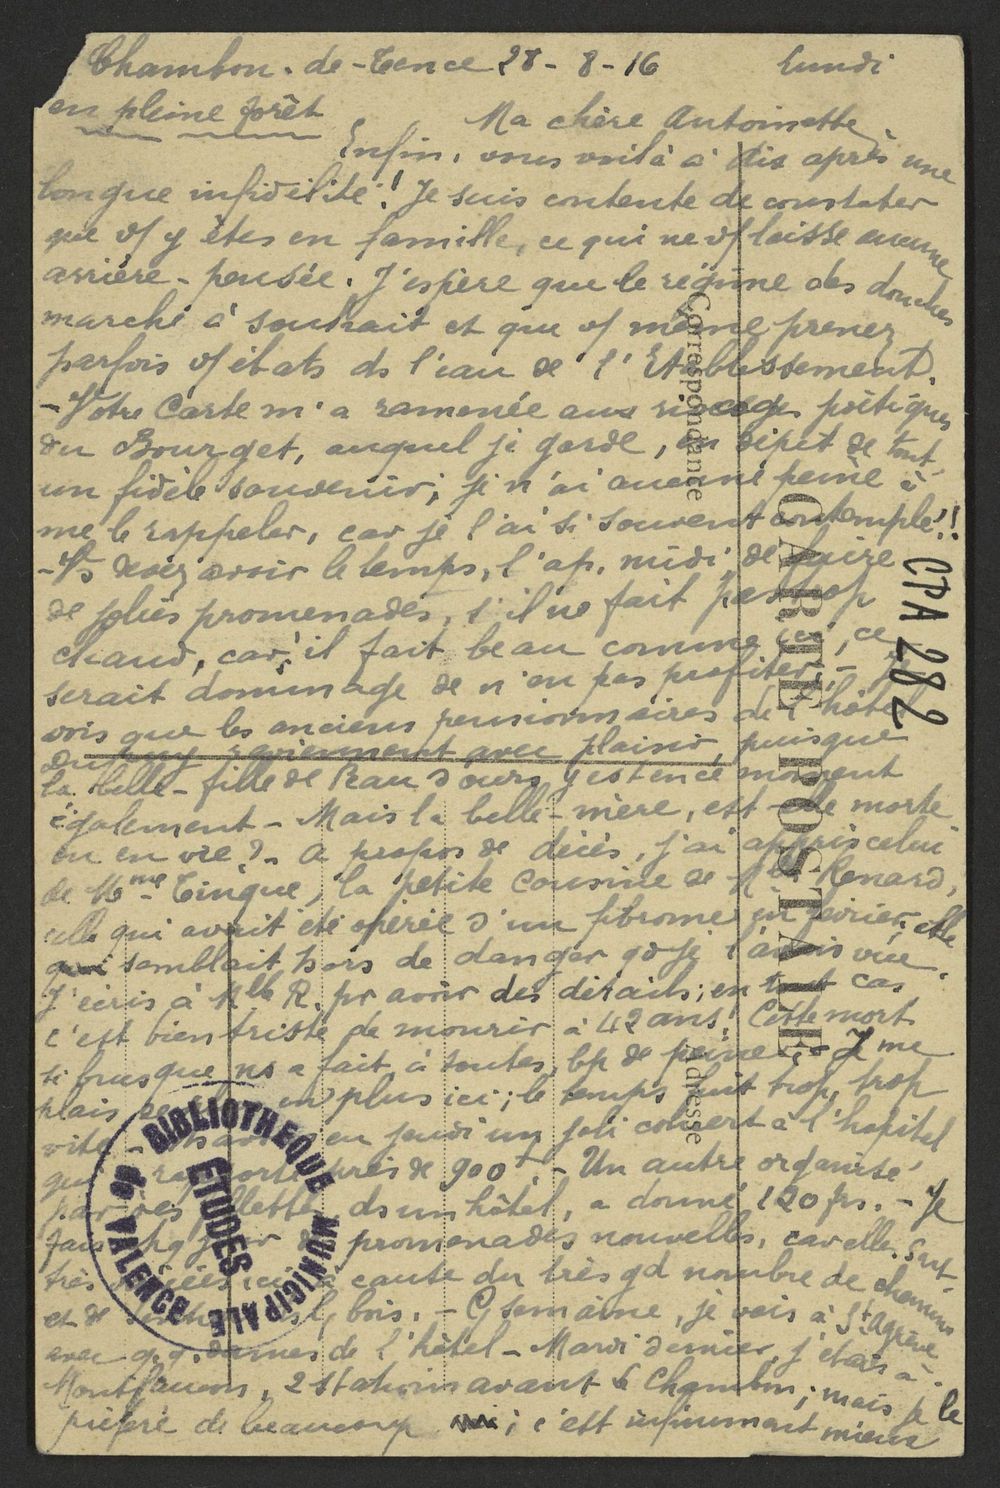 Chambon-de-Tence 28-8-16 Lundi
en pleine forêt
Ma chère Antoinette,
Enfin, vous voilà à Aix après une
longue infidélité! Je suis contente de constater
que vs y êtes en famille, ce qui ne vs laisse aucune
arrière-pensée. J'espère que le régime des douches
marche à souhait et que vs même prenez
parfois vs ébats ds l'eau de l'Etablissement.
- Votre Carte m'a ramenée aux rivages poétiques
du Bourget, auquel je garde, en dépit de tout,
un fidèle souvenir; je n'ai aucune peine à
me le rappeler, car je l'ai si souvent contemplé!!
- Vs devez avoir le temps, l'ap. midi de faire
de jolies promenades, s'il ne fait pas trop
chaud, car, s'il fait beau comme ici, ce
serait dommage de n'en pas profiter. - Je
vois que les anciens pensionnaires de l'hôtel
reviennent avec plaisir, puisque
la belle-fille de Peau d'ours y est en ce moment
également - Mais la belle-mère, est-elle morte
ou en vie? - A propos de décès, j'ai appris celui
de Mme Tinque, la petite cousine de Mlle Renard,
celle qui avait été opérée d'un fibrome en février. elle
semblait hors de danger qd je l'avais vue.
J'écris à Mlle R. pr avoir des détails; en tout cas
c'est bien triste de mourir à 42 ans! Cette mort
si brusque ns a fait, à toutes, bp de peine. - Je me
plais de plus en plus ici; le temps fuit trop, trop
vite - en jeudi un joli concert à l'hôpital
qui rapporte près de 900f. - Un autre organisé
par des fillettes, ds un hôtel, a donné 120 frs. - Je
fais chq jour de promenades nouvelles, car elles sont
très variées ici, à cause du très gd nombre de chemins
et de ds les bois. - Cette semaine, je vais à St Agrève
avec q.q. dames de l'hôtel - Mardi dernier, j'étais à
Montfaucon, 2 stations avant le Chambon; mais je le
préfère de beaucoup ; c'est infiniment mieux
Correspondance
CARTE POSTALE
Adresse
CPA 282
BIBLIOTHEQUE MUNICIPALE
de VALENCE
ETUDES